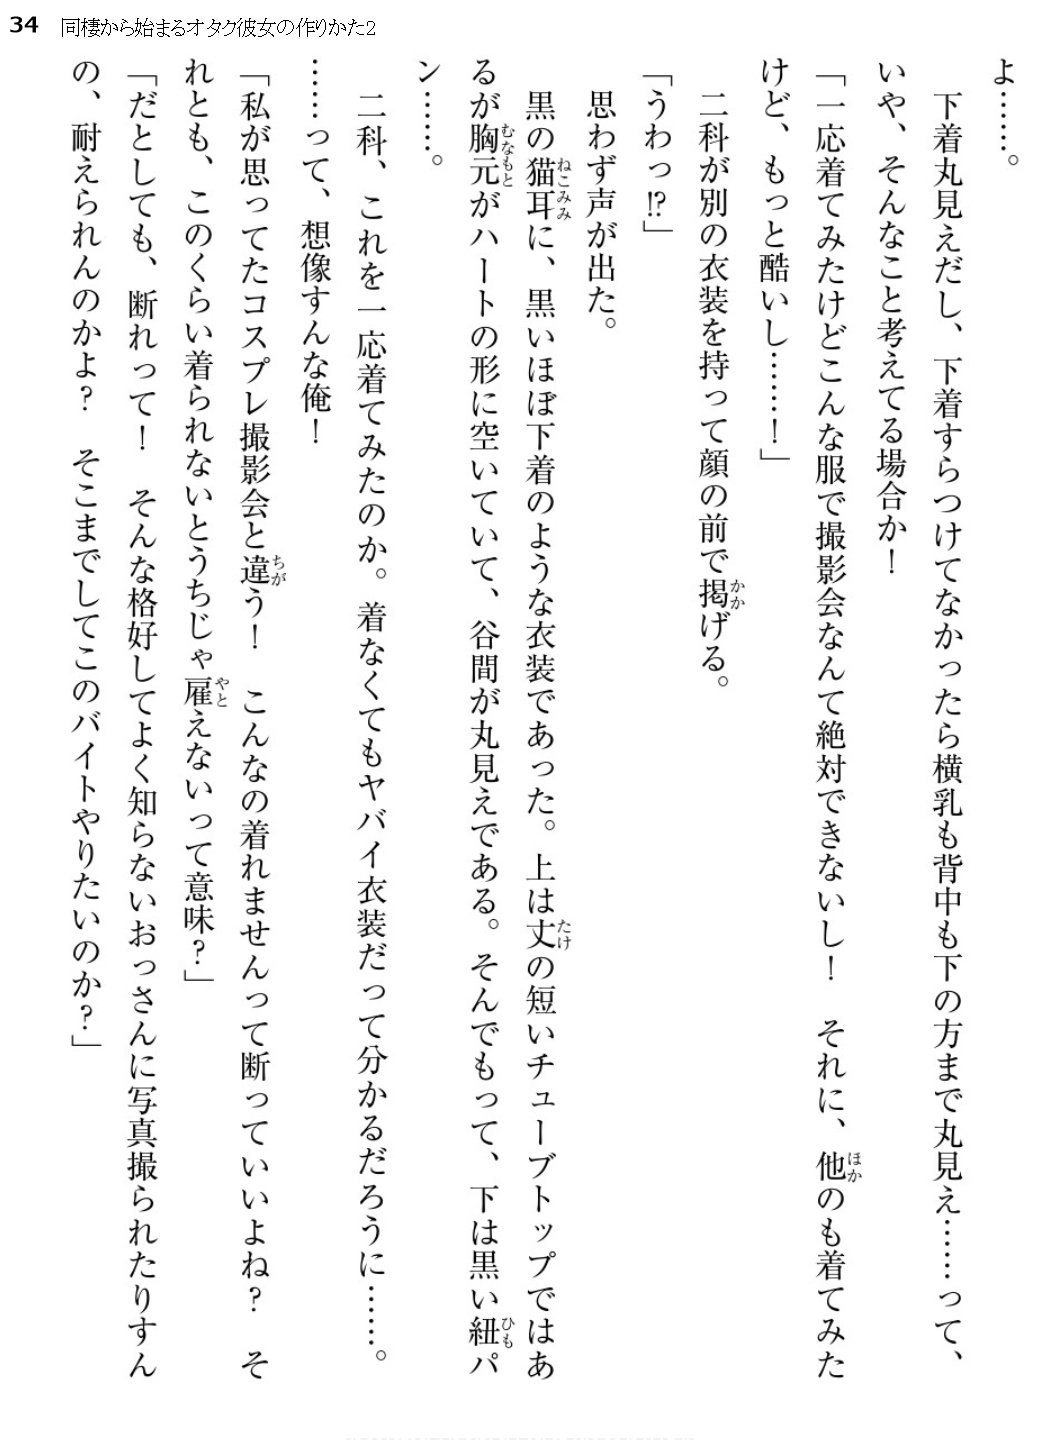 34 同棲から始まるオタク彼女の作りかた2
よ……。
　下着丸見えだし、下着すらつけてなかったら横乳も背中も下の方まで丸見え……って、
いや、そんなこと考えてる場合か！
「一応着てみたけどこんな服で撮影会なんて絶対できないし！　それに、他のも着てみた
けど、もっと酷いし……！」
　二科が別の衣装を持って顔の前で掲げる。
「うわっ!?」
　思わず声が出た。
　黒の猫耳に、黒いほぼ下着のような衣装であった。上は丈の短いチューブトップではあ
るが胸元がハートの形に空いていて、谷間が丸見えである。そんでもって、下は黒い紐パ
ン……。
　二科、これを一応着てみたのか。着なくてもヤバイ衣装だって分かるだろうに……。
……って、想像すんな俺！
「私が思ってたコスプレ撮影会と違う！　こんなの着れませんって断っていいよね？　そ
れとも、このくらい着られないとうちじゃ雇えないって意味？」
「だとしても、断れって！　そんな格好してよく知らないおっさんに写真撮られたりすん
の、耐えられんのかよ？　そこまでしてこのバイトやりたいのか？」